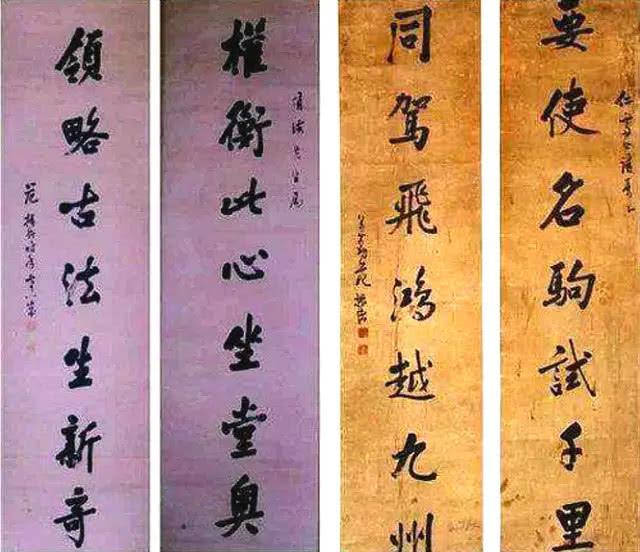 要使名駒試千里
同駕飛鴻越九州
權衡此心坐堂奧
領略古法生新奇
范振緒時年